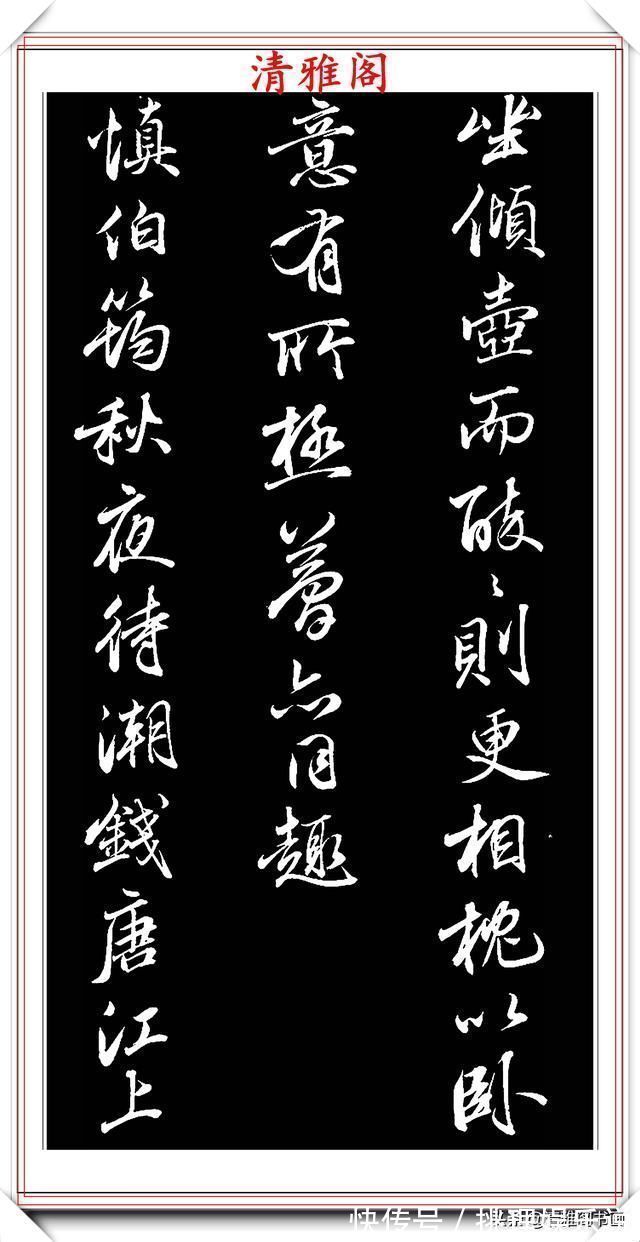 清雅阁
坐傾壺而醉々則更相枕以卧
意有所極夢亦同趣
慎伯筠秋夜待潮錢唐江上
快传号 /